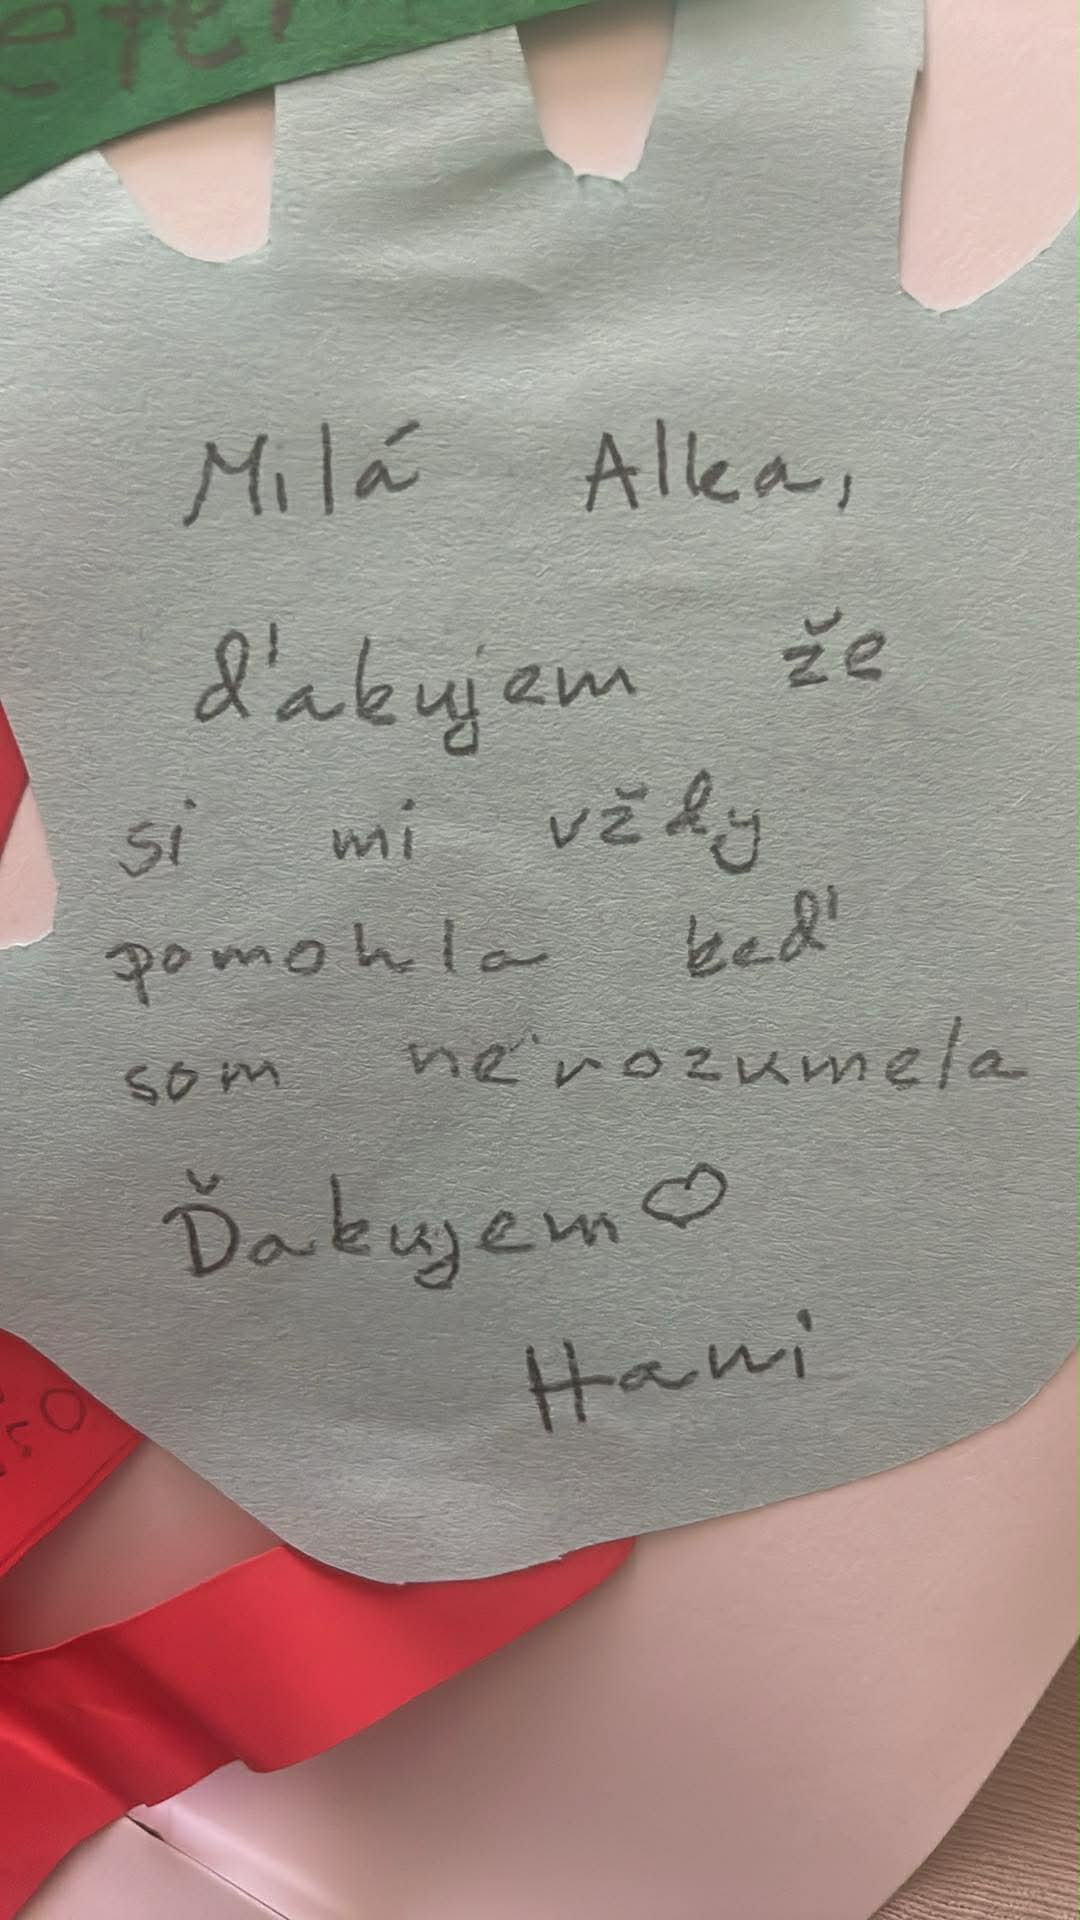 Milá Alka,
ďakujem že
si mi vždy
pomohla keď
som nerozumela
Ďakujem ♡
Hani